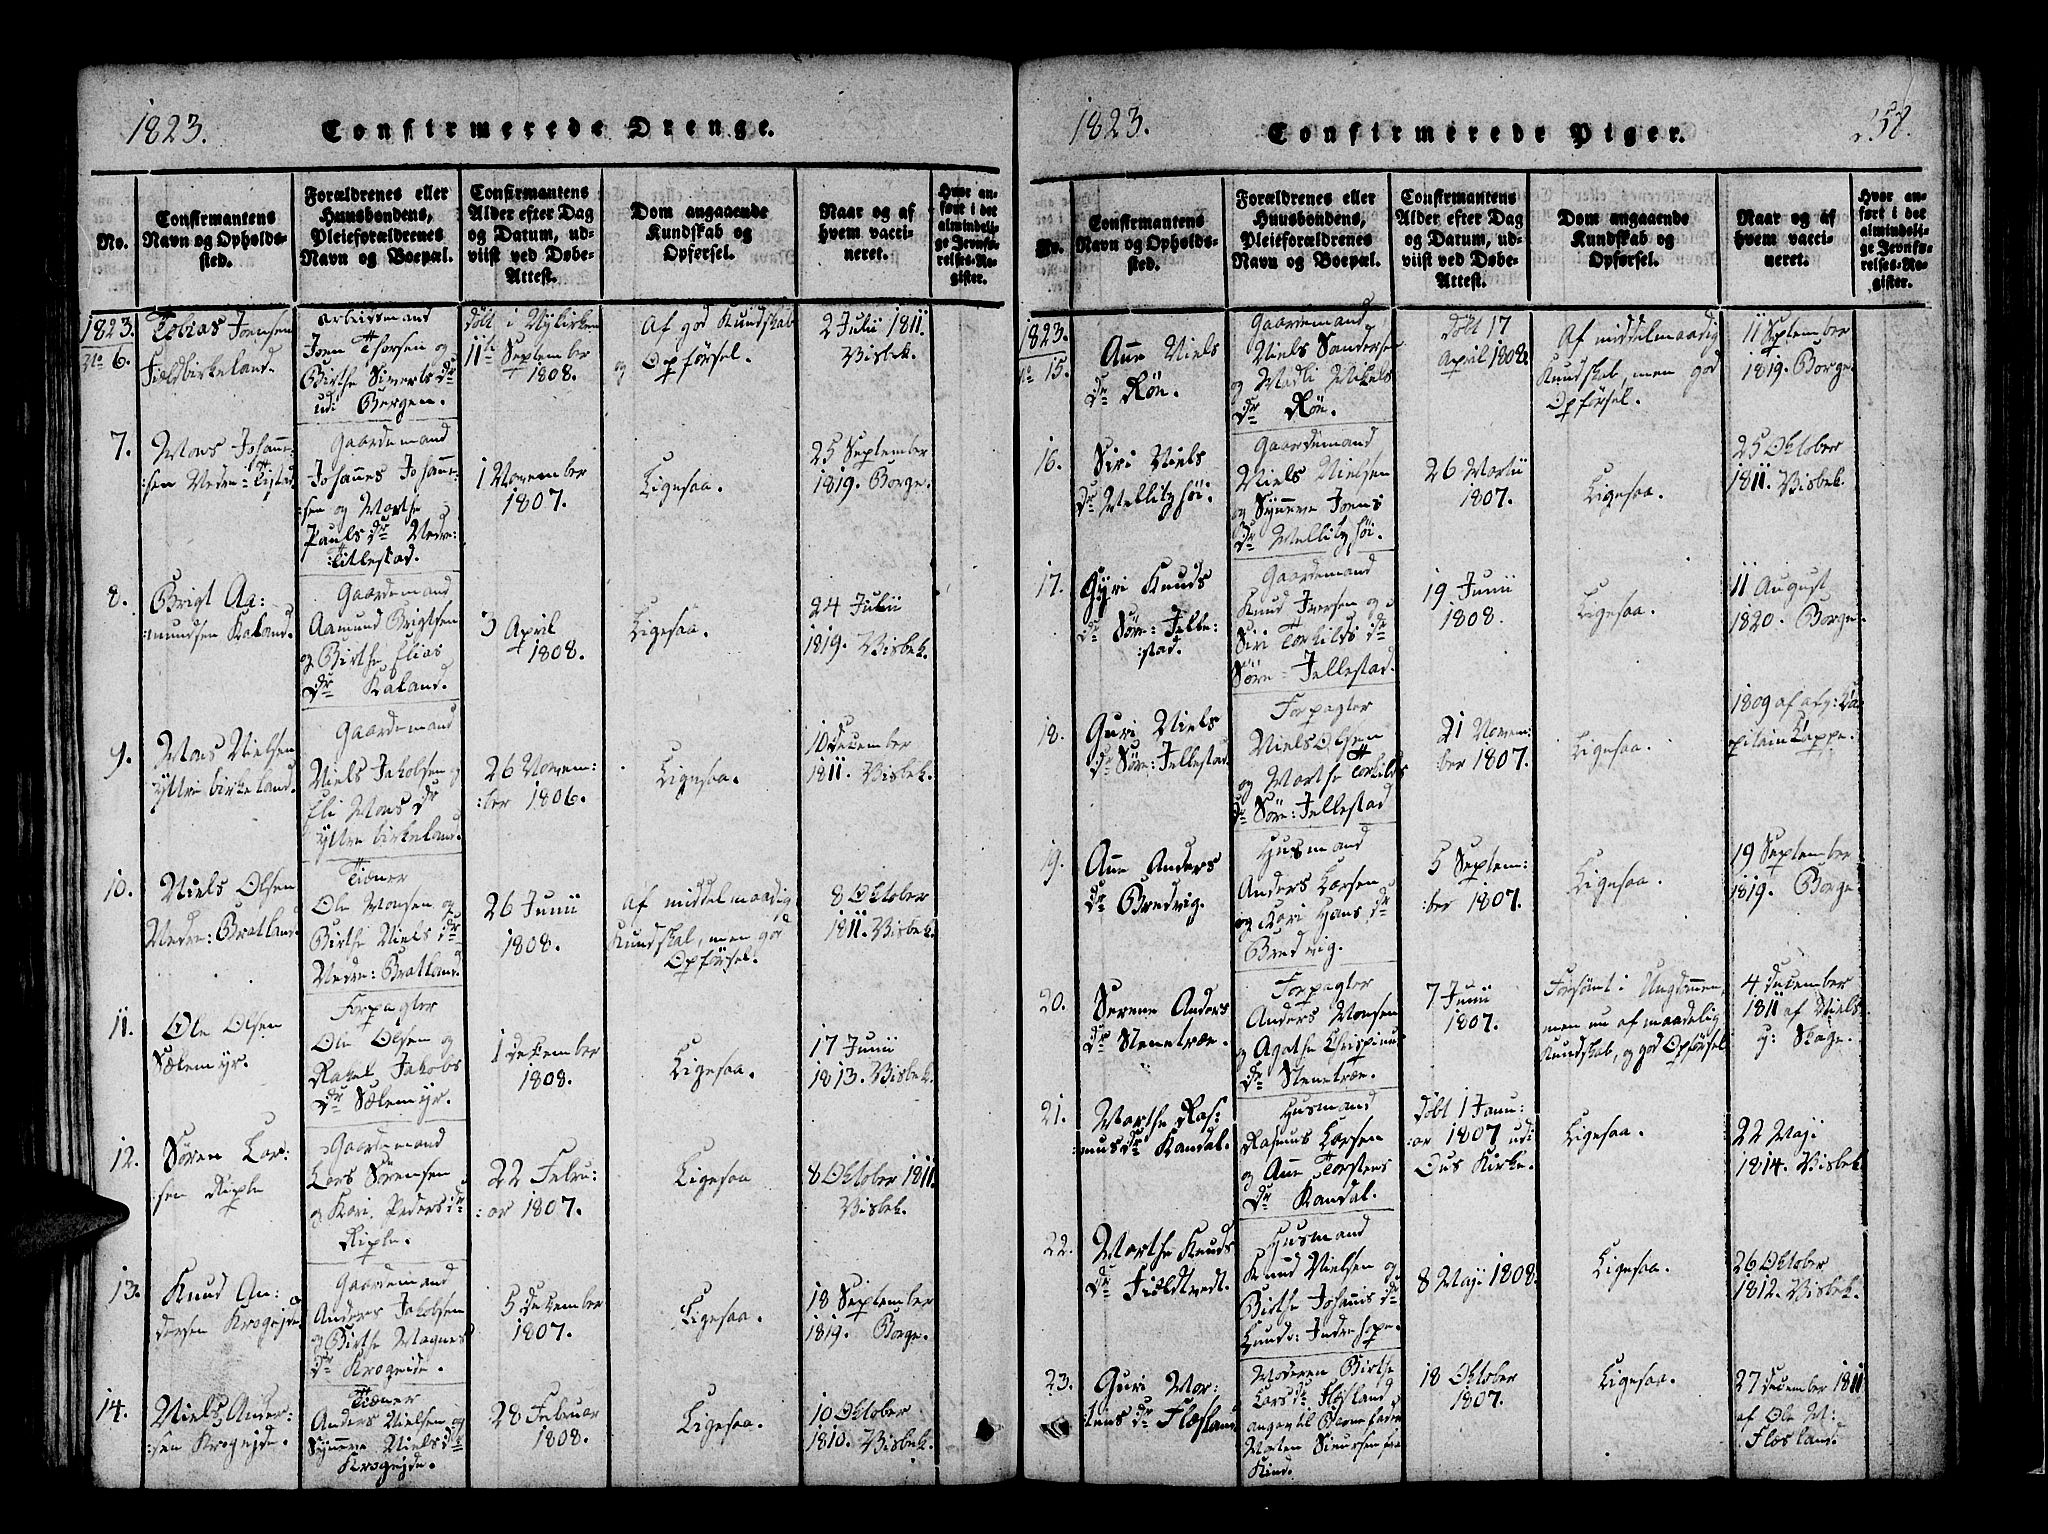 1823.
Confirmerede Drenge.
No.
Confirmantens
Navn og Opholds-
sted.
Forældrenes eller
Huusbondens,
Pleieforældrenes
Navn og Boepæl.
Confirmantens
Alder efter Dag
og Datum, ud-
viist ved Døbe-
Attest.
Dom angaaende
Kundskab og
Opførsel.
Naar og af
hvem vacci-
neret.
Hvor an-
ført i det
almindeli-
ge Jevnfø-
relses-Re-
gister.
1823.
No 6.
Tobias Joensen
Fieldbirkeland.
Arbeidsmand
Joen Thorsen og
Birthe Siverts dr
udi Bergen.
døbt i Nykirken
11te September
1808.
Af god Kundskab
og Opførsel.
2 Julii 1811.
Bisbek.
7.
Mons Johanne-
:sen Nedre-Titlestad
Gaardemand
Johannes Johanne-
:sen og Marthe
Pauls dr Nedre:
:Titlestad.
1 November
1807.
Ligesaa.
25 September
1819. Borge.
8.
Brigt Aa:
:mundsen Kaland.
Gaardemand
Aamund Brigtsen
og Birthe Elias
dr Kaland.
3 April
1808.
Ligesaa.
24 Julii
1819. Bisbek.
9.
Mons Nielsen
Yttre birkeland.
Gaardemand
Niels Jakobsen og
Eli Mons dr
Yttre birkeland.
26 Novem:
:ber 1806.
Ligesaa.
10 december
1811. Bisbek.
10.
Niels Olsen
Nedre: Bratland.
Ole Monsen og
Birthe Niels dr
Nedre: Bratland.
26 Junii
1808.
Af middelmaadig
Kundskab, men god
Opførsel.
8 Oktober
1811. Bisbek.
11.
Ole Olsen
Sælemyr.
Forpagter
Ole Olsen og
Rakel Jakobs
dr Sælemyr.
1 december
1808.
Ligesaa.
17 Junii
1813. Bisbek.
12.
Søren Lar:
:sen Riple
Gaardemand
Lars Sørensen
og Kari Peders dr
Riple.
22 Febru:
:ar 1807.
Ligesaa
8 Oktober 1811.
Bisbek.
13.
Knud An:
dersen Krogejde
Gaardemand
Anders Jakobsen
og Birthe Magnes
dr Krogeide.
5 december
1807.
Ligesaa.
18 September
1819. Borge.
14.
Niels Ander:
:sen Krogejde.
Tiener
Anders Nielsen og
Synneve Niels dr
Krogejde.
28 Februar
1808.
Ligesaa.
10 Oktober
1810. Bisbek.
1823.
Confirmerede Piger.
258.
No.
Confirmantens
Navn og Opholds-
sted.
Forældrenes eller
Huusbondens,
Pleieforældrenes
Navn og Boepæl.
Confirmantens
Alder efter Dag
og Datum, ud-
viist ved Døbe-
Attest.
Dom angaaende
Kundskab og
Opførsel.
Naar og af
hvem vacci-
neret.
Hvor an-
ført i det
almindeli-
ge Jevnfø-
relses-Re-
gister.
1823.
No 15.
Ane Niels
dr Røn.
Gaardemand
Niels Sandersen
og Madli Mikels
dr Røn.
Døbt 17
April 1808.
Af middelmaadig
Kundskab, men god
Opførsel.
11 September
1819. Borge.
16.
Siri Niels
dr Mellingshøi.
Gaardemand
Niels Nielsen
og Synneve Joens
dr Mellingshøi.
26 Martii
1807.
Ligesaa.
25 Oktober
1811. Bisbek.
17.
Gyri Knuds
dr Søre: Jelle:
:stad.
Gaardemand
Knud Iversen og
Siri Torkilds dr
Søre-Jellestad.
19 Junii
1808.
Ligesaa.
11 August
1820. Borge.
18.
Guri Niels
dr Søre: Jellestad.
Forpagter
Niels Olsen
og Marthe Torkilds
dr Søre: Jellestad
21 Novem:
ber 1807.
Ligesaa.
1809 af afg: Ca-
pitain Cappe.
19.
Ane Anders
dr Bredvig.
Husmand
Anders Larsen
og Kari Hans dr
Bredvig.
5 Septem:
:ber 1807.
Ligesaa.
19 September
1819. Borge.
20.
Serene Anders
dr Stenetræe.
Forpagter
Anders Monsen
og Agathe Chrispinus
dr Stenetræe.
7 Junii
1807.
Forsömt i Ungdommen,
men nu af maadelig
Kundskab, og god Opførsel
4 december
1811 af Niels
g: Skage.
21.
Marthe Ras:
:mus dr Kandal.
Husmand
Rasmus Larsen
og Ane Torstens
dr Kandal.
døbt 1 Janu:
:ar 1807 udi
Ous Kirke.
Ligesaa.
22 Maji
1814. Bisbek
22.
Marthe Knuds
dr Fieldtvedt.
Husmand
Knud Nielsen og
Birthe Johannis dr
Lunde: Indrehope.
8 Maji 1808.
Ligesaa.
26 Oktober
1812. Bisbek.
23.
Guri Mor:
:tens dr Flæsland
Moderen Birthe
Lars dr Flæsland
angav til Barnefader
Morten Sieursen fra
Kind.
18 Oktober
1807.
Ligesaa.
27 december 1811
af Ole M:
Flæsland.